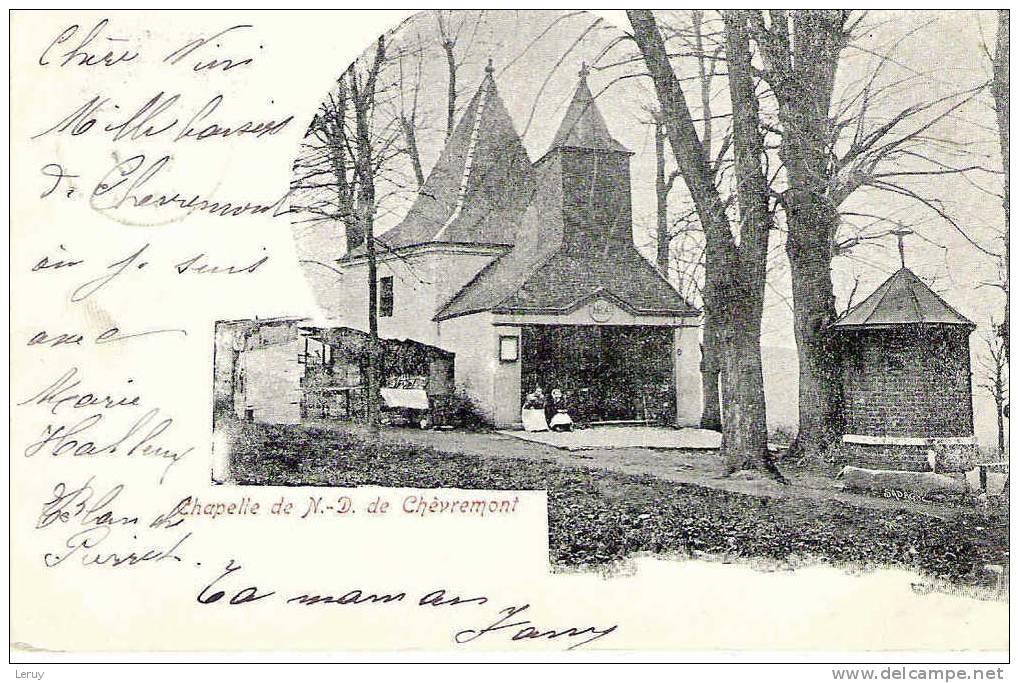 Chère Nini
Mille baisers
de Chèvremont
où je suis
avec
Marie
et
Pierret.
Ta maman
Chapelle de N.-D. de Chèvremont
SADAG
Leruy
www.delcampe.net